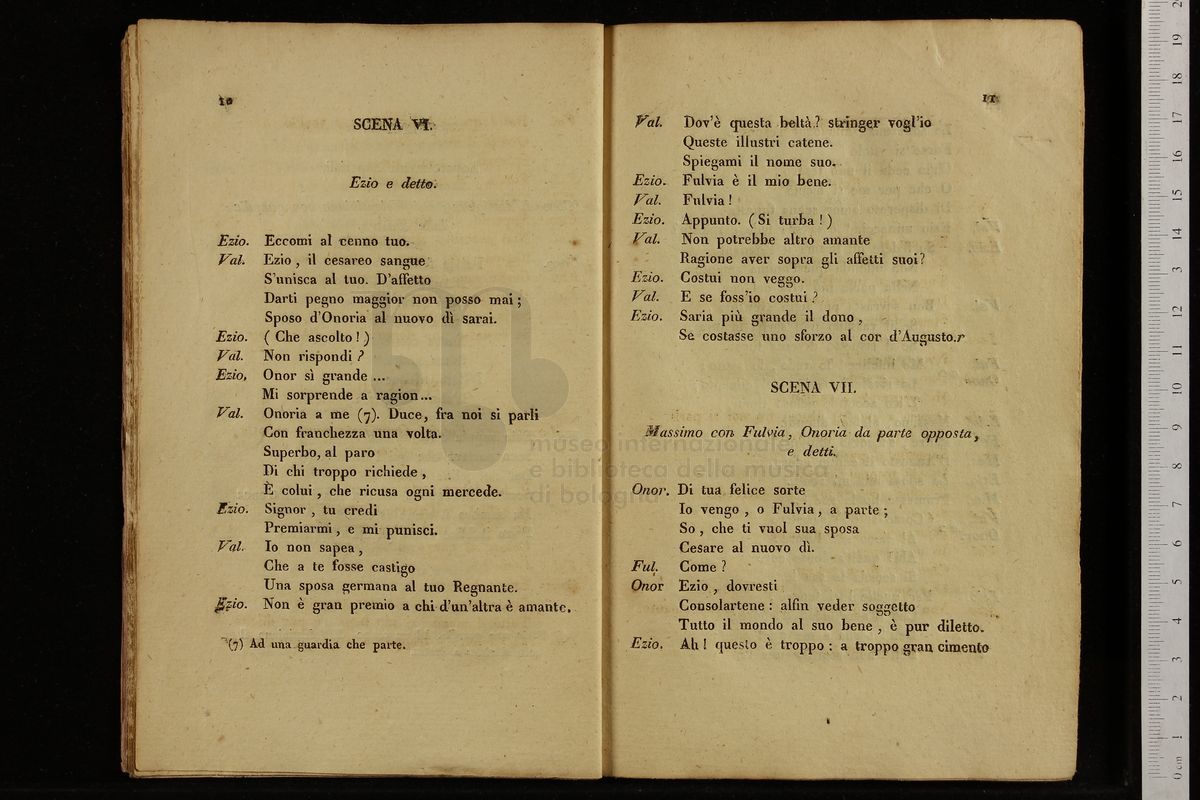 10
SCENA VI.
Ezio e detto.
Ezio. Eccomi al cenno tuo.
Val. Ezio, il cesareo sangue
S'unisca al tuo. D'affetto
Darti pegno maggior non posso mai;
Sposo d'Onoria al nuovo dì sarai.
Ezio. (Che ascolto!)
Val. Non rispondi?
Ezio, Onor sì grande ...
Mi sorprende a ragion...
Val. Onoria a me (7). Duce, fra noi si parli
Con franchezza una volta.
Superbo, al paro
Di chi troppo richiede,
È colui, che ricusa ogni mercede.
Ezio. Signor, tu credi
Premiarmi, e mi punisci.
Val. Io non sapea,
Che a te fosse castigo
Una sposa germana al tuo Regnante.
Ezio. Non è gran premio a chi d'un'altra è amante.
(7) Ad una guardia che parte.
11
Val. Dov'è questa beltà? stringer vogl'io
Queste illustri catene.
Spiegami il nome suo.
Ezio. Fulvia è il mio bene.
Val. Fulvia!
Ezio. Appunto. (Si turba!)
Val. Non potrebbe altro amante
Ragione aver sopra gli affetti suoi?
Ezio. Costui non veggo.
Val. E se foss'io costui?
Ezio. Saria più grande il dono,
Se costasse uno sforzo al cor d'Augusto.r
SCENA VII.
Massimo con Fulvia, Onoria da parte opposta,
e detti.
Onor. Di tua felice sorte
Io vengo, o Fulvia, a parte;
So, che ti vuol sua sposa
Cesare al nuovo dì.
Ful. Come?
Onor Ezio, dovresti
Consolartene: alfin veder soggetto
Tutto il mondo al suo bene, è pur diletto.
Ezio. Ah! questo è troppo: a troppo gran cimento
museo internazionale
e biblioteca della musica
di bologna
0 cm 1 2 3 4 5 6 7 8 9 10 11 12 13 14 15 16 17 18 19 2